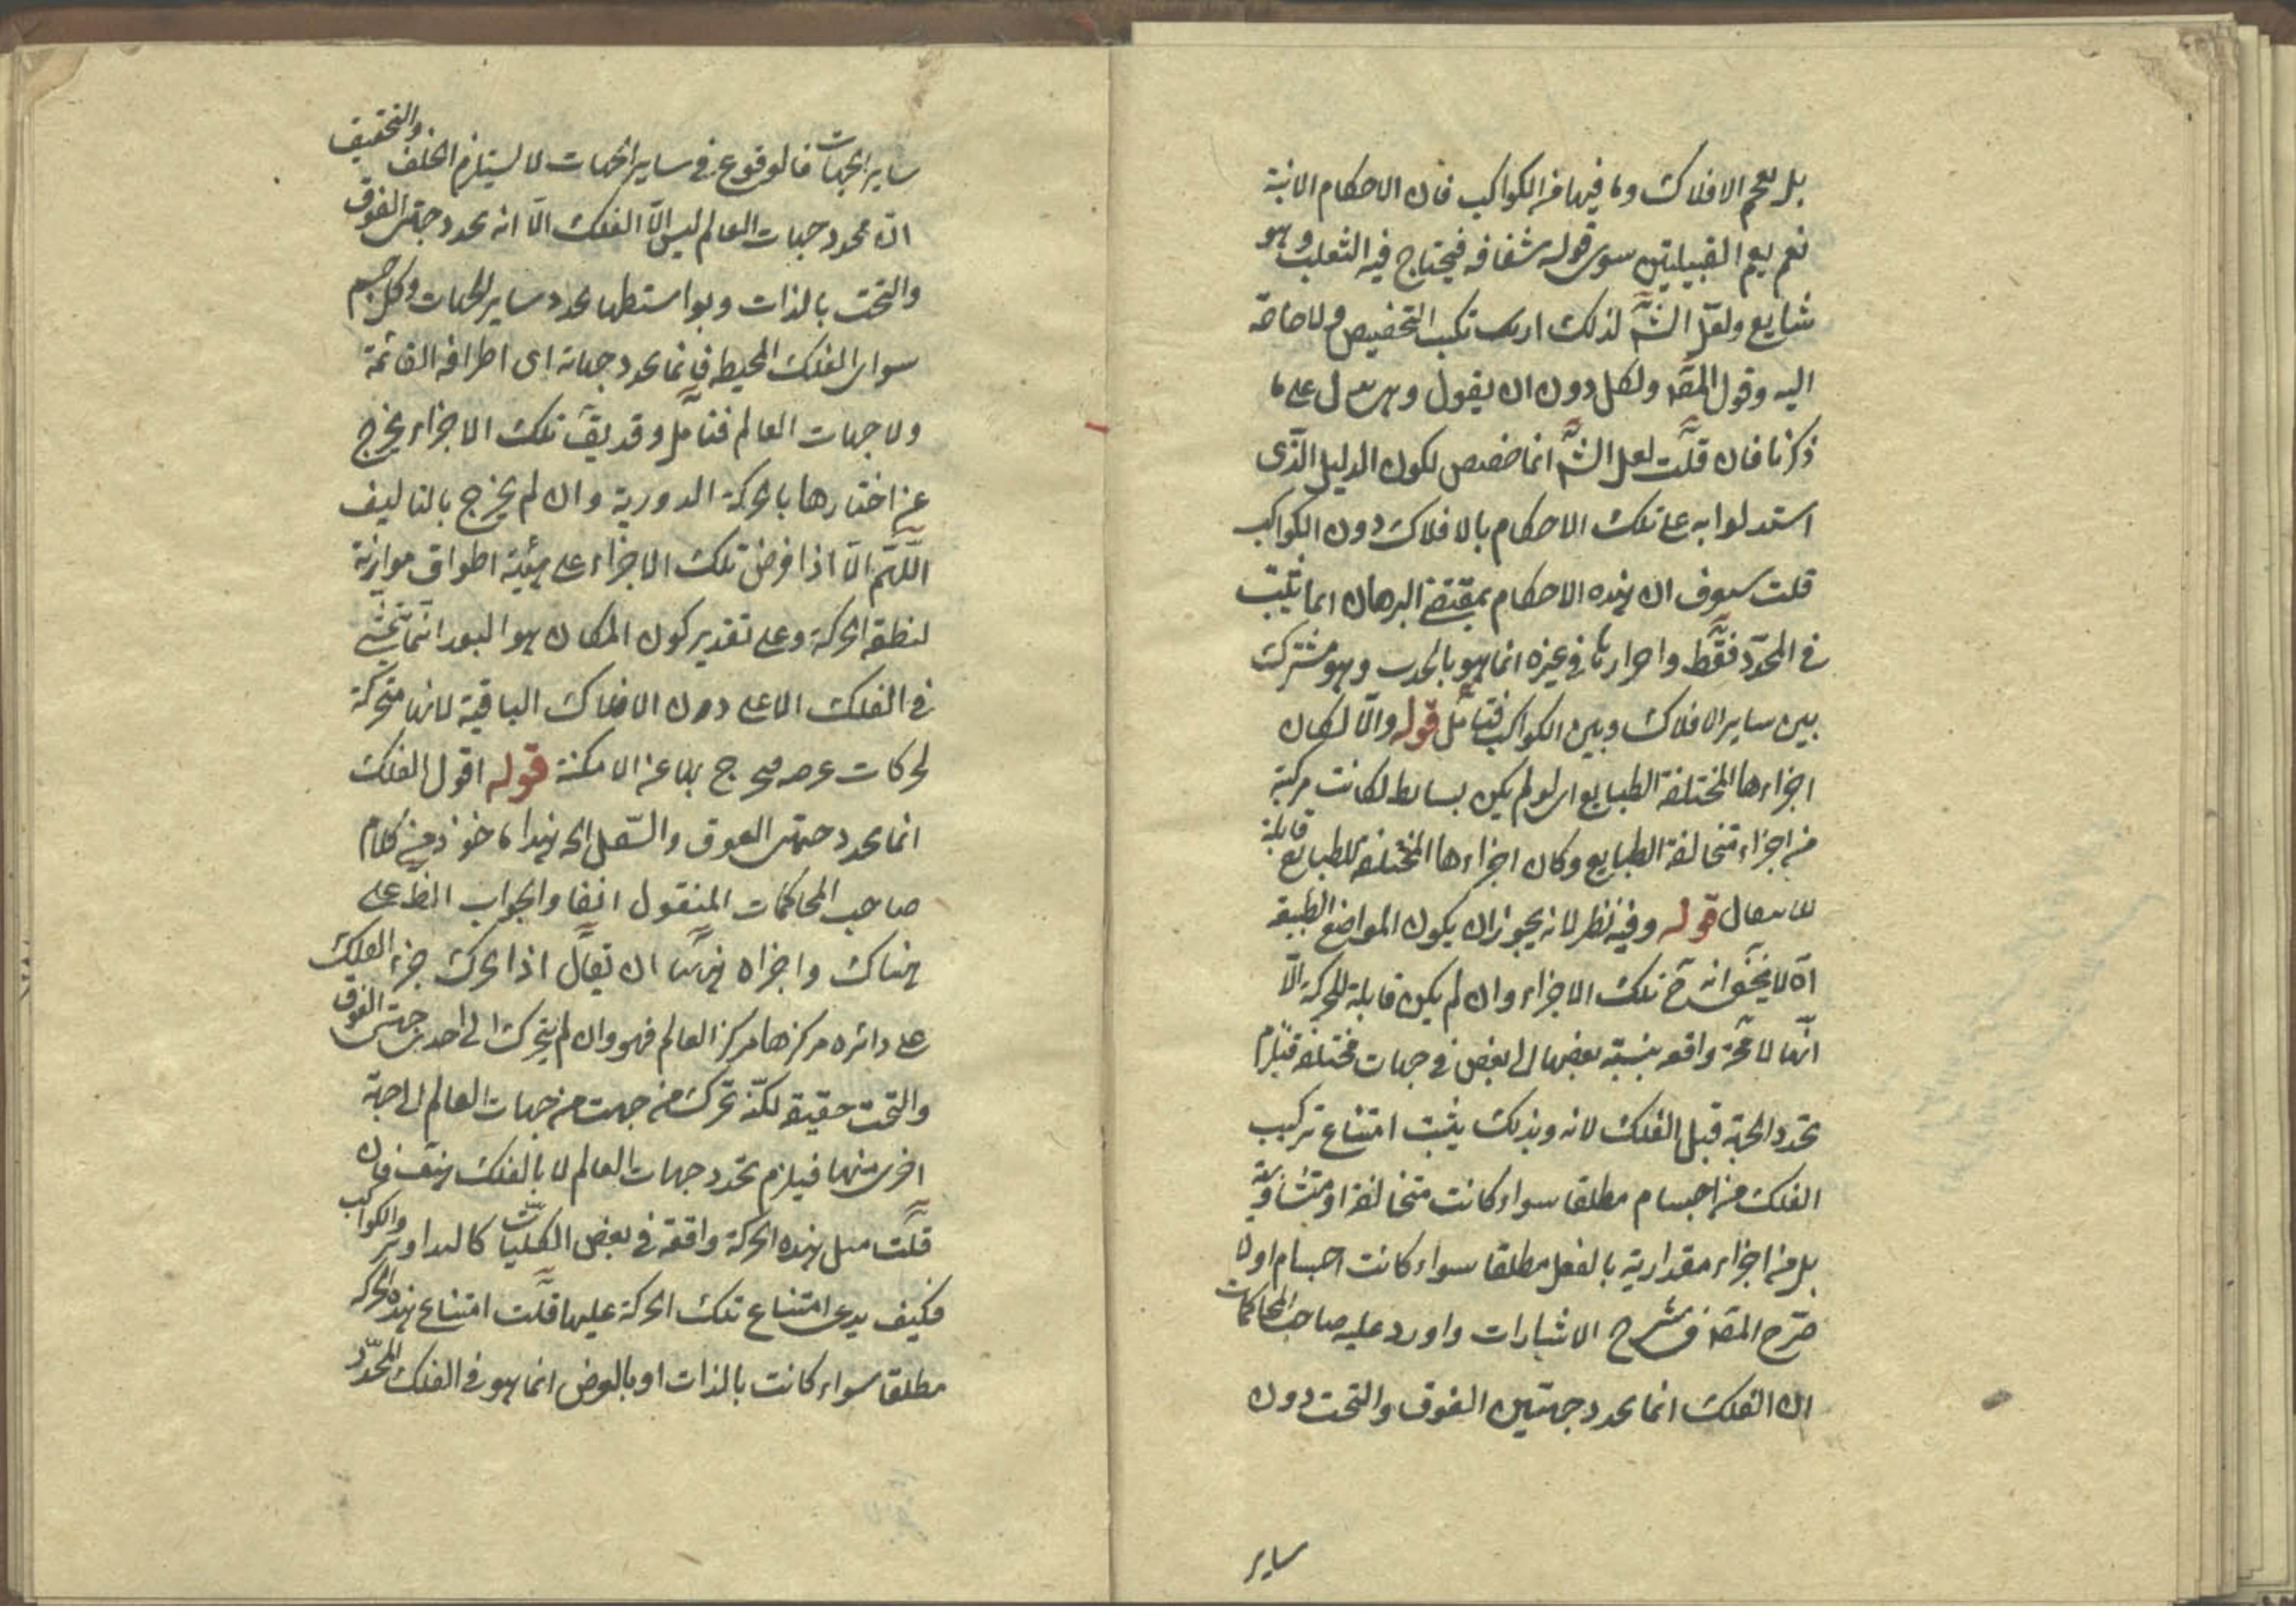 بل يعم الافلاك وما فيها من الكواكب فان الاحكام الاتية
نعم يعم القبيلتين سوى قوله شفافة فيحتاج فيه التغليب وهو
شايع ولعل الشَّ لذلك ارتكب التخصيص ولا حاجة
اليه وقول المصَ ولكل دون ان يقول و على ما
ذكرنا فان قلت لعل الشَّ انما خصص لكون الدليل الذى
استدلوا به على تلك الاحكام بالافلاك دون الكواكب
قلت سوف ان هذه الاحكام بمقتضى البرهان انما تثبت
فى المحدّد فقط واجراؤها فى غيره انما هو بالحدس وهو مشترك
بين ساير الافلاك وبين الكواكب فتامل قوله والّا لكان
اجزاءها المختلفة الطبايع اى لو لم يكن بسايط لكانت مركبة
من اجزاء متخالفة الطبايع وكان اجزاءها المختلفة الطبايع قابلة
للانتقال قوله وفيه نظر لانه يجوز ان يكون المواضع الطبيعة
اه لا يخفى انه ح تلك الاجزاء وان لم يكن قابلة للحركة الّا
انّها لا محَ واقعة بنسبة بعضها الى بعض فى جهات مختلفة فيلزم
تحدد الجهة قبل الفلك لانه وبذلك يثبت امتناع تركيب
الفلك من اجسام مطلقا سواء كانت متخالفة او متشاوية
بل من اجزاء مقدارية بالفعل مطلقا سواء كانت اجسام اولا
صرّح المصَ فى شرح الاشارات واورد عليه صاحب المحاكمات
ان الفلك انما يحدد جهتين الفوق والتحت دون
ساير
ساير الجهات فالوقوع فى ساير الجهات لا يستلزم الخلف والتحقيق
انّ محدد جهات العالم ليس الّا الفلك الّا انه يحدد جهتى الفوق
والتحت بالذات وبواسطتها يحدد ساير الجهات وكل جسم
سوى الفلك المحيط فانما يحدد جهاته اى اطرافه القائمة
ولا جهات العالم فتامل وقد يقَ تلك الاجزاء يخرج
عن اختيارها بالحركة الدورية وان لم يخرج بالتاليف
اللّهم الّا اذا فرض تلك الاجزاء على هيئة اطواق موازية
لمنطقة الحركة وعلى تقدير كون المكان هو البعد انما تمشى
فى الفلك الاعلى دون الافلاك الباقية لانها متحركة
لحركات بها عن الامكنة قوله اقول الفلك
انما يحدد جهتى الفوق والسّفل الخ هذا ماخوذ من كلام
صاحب المحاكمات المنقول انفا والجواب الظ على
هناك واجراه هنا ان يقال اذا تحرك جزء الفلك
على دائرة مركزها مركز العالم فهو وان لم يتحرك الى احدى جهتى الفوق
والتحت حقيقة لكنّه تحرك من جهة من جهات العالم الى جهة
اخرى منها فيلزم تحدد جهات العالم لا بالفلك هف فان
قلت مثل هذه الحركة واقعة فى بعض الكليات كالتداوير والكواكب
فكيف يدعى امتناع تلك الحركة عليها قلت امتناع هذه الحركة
مطلقا سواء كانت بالذات او بالعرض انما هو فى الفلك المحدّد